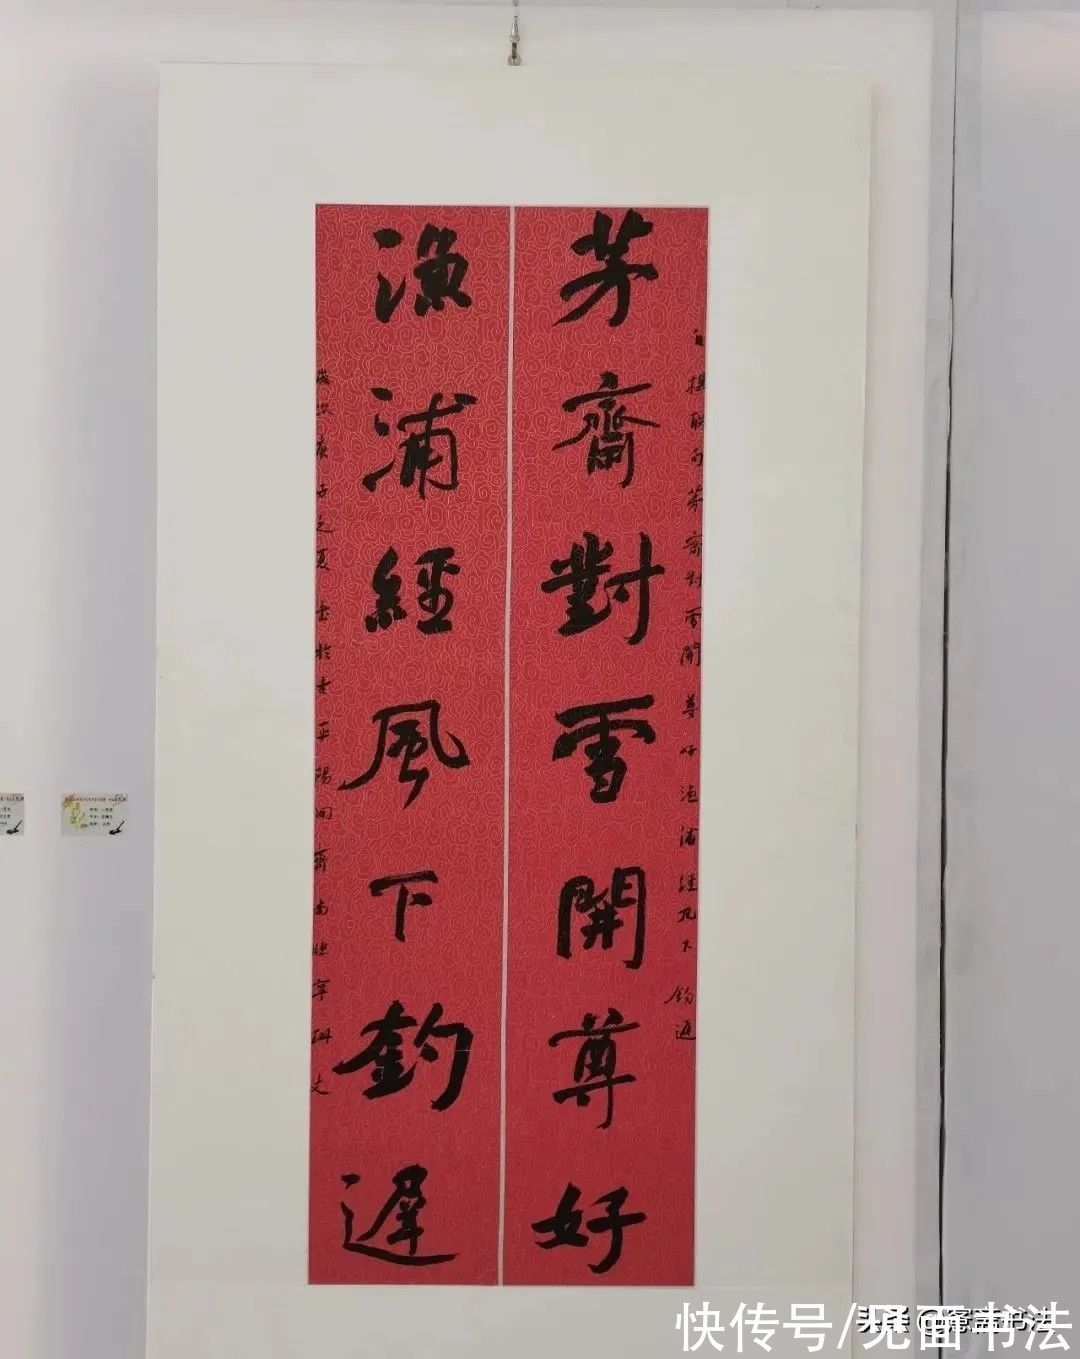 茅齋對雪開尊好
漁浦經風下釣遲
自撰联句茅齋对雪開尊好渔浦經風下钓遲
歲次庚子之夏書於古平陽
快传号/见面书法
头条